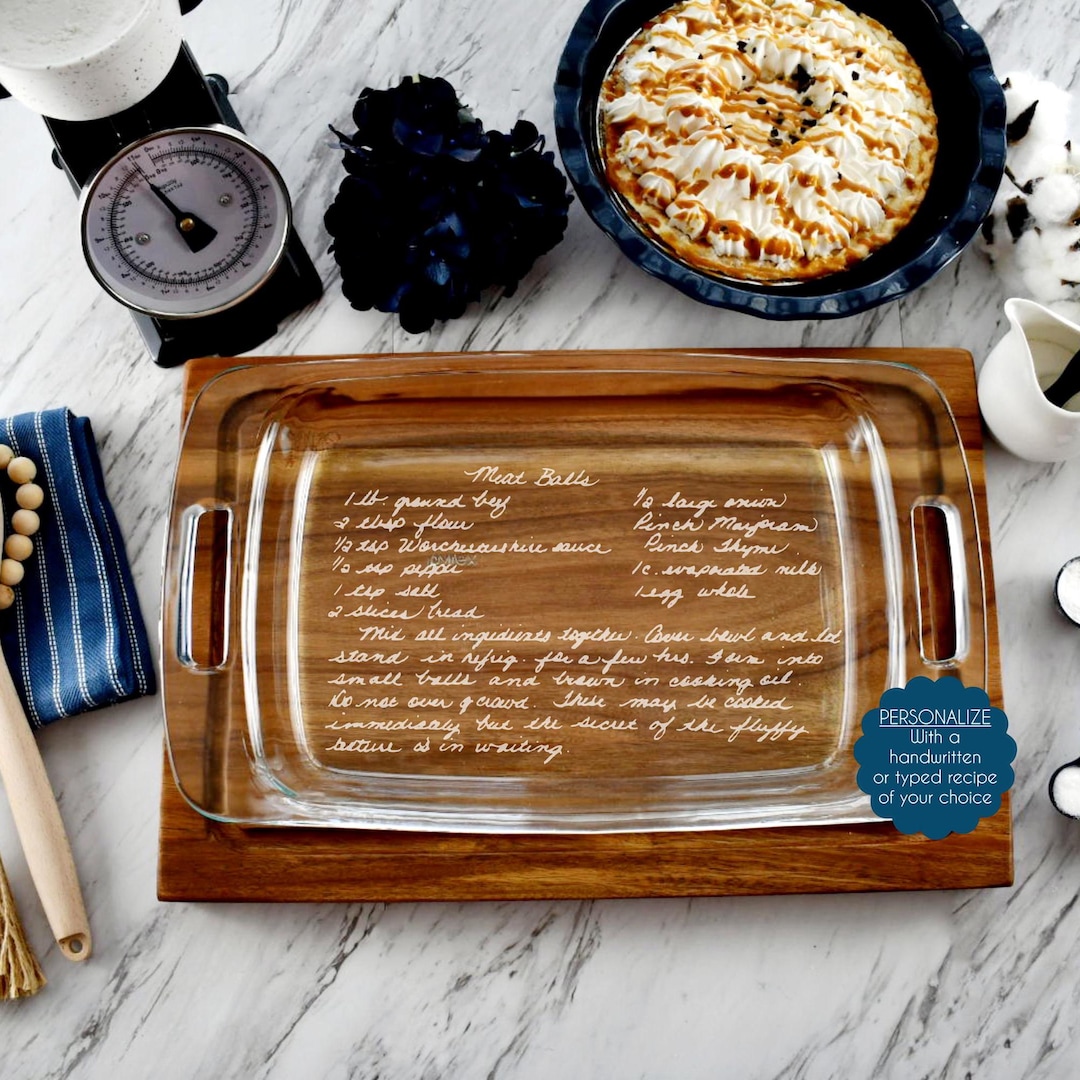 Meat Balls
1 lb. ground beef
2 tbsp flour
1/2 tsp Worchestershire sauce
1/2 tsp pepper
1 tsp salt
2 slices bread
1/2 large onion
Pinch Marjoram
Pinch Thyme
1c. evaporated milk
1 egg whole
Mix all ingredients together. Cover bowl and let
stand in refrig. for a few hrs. Form into
small balls and brown in cooking oil.
Do not over crowd. These may be cooked
immediately but the secret of the fluffy
texture is in waiting.
PERSONALIZE
With a
handwritten
or typed recipe
of your choice